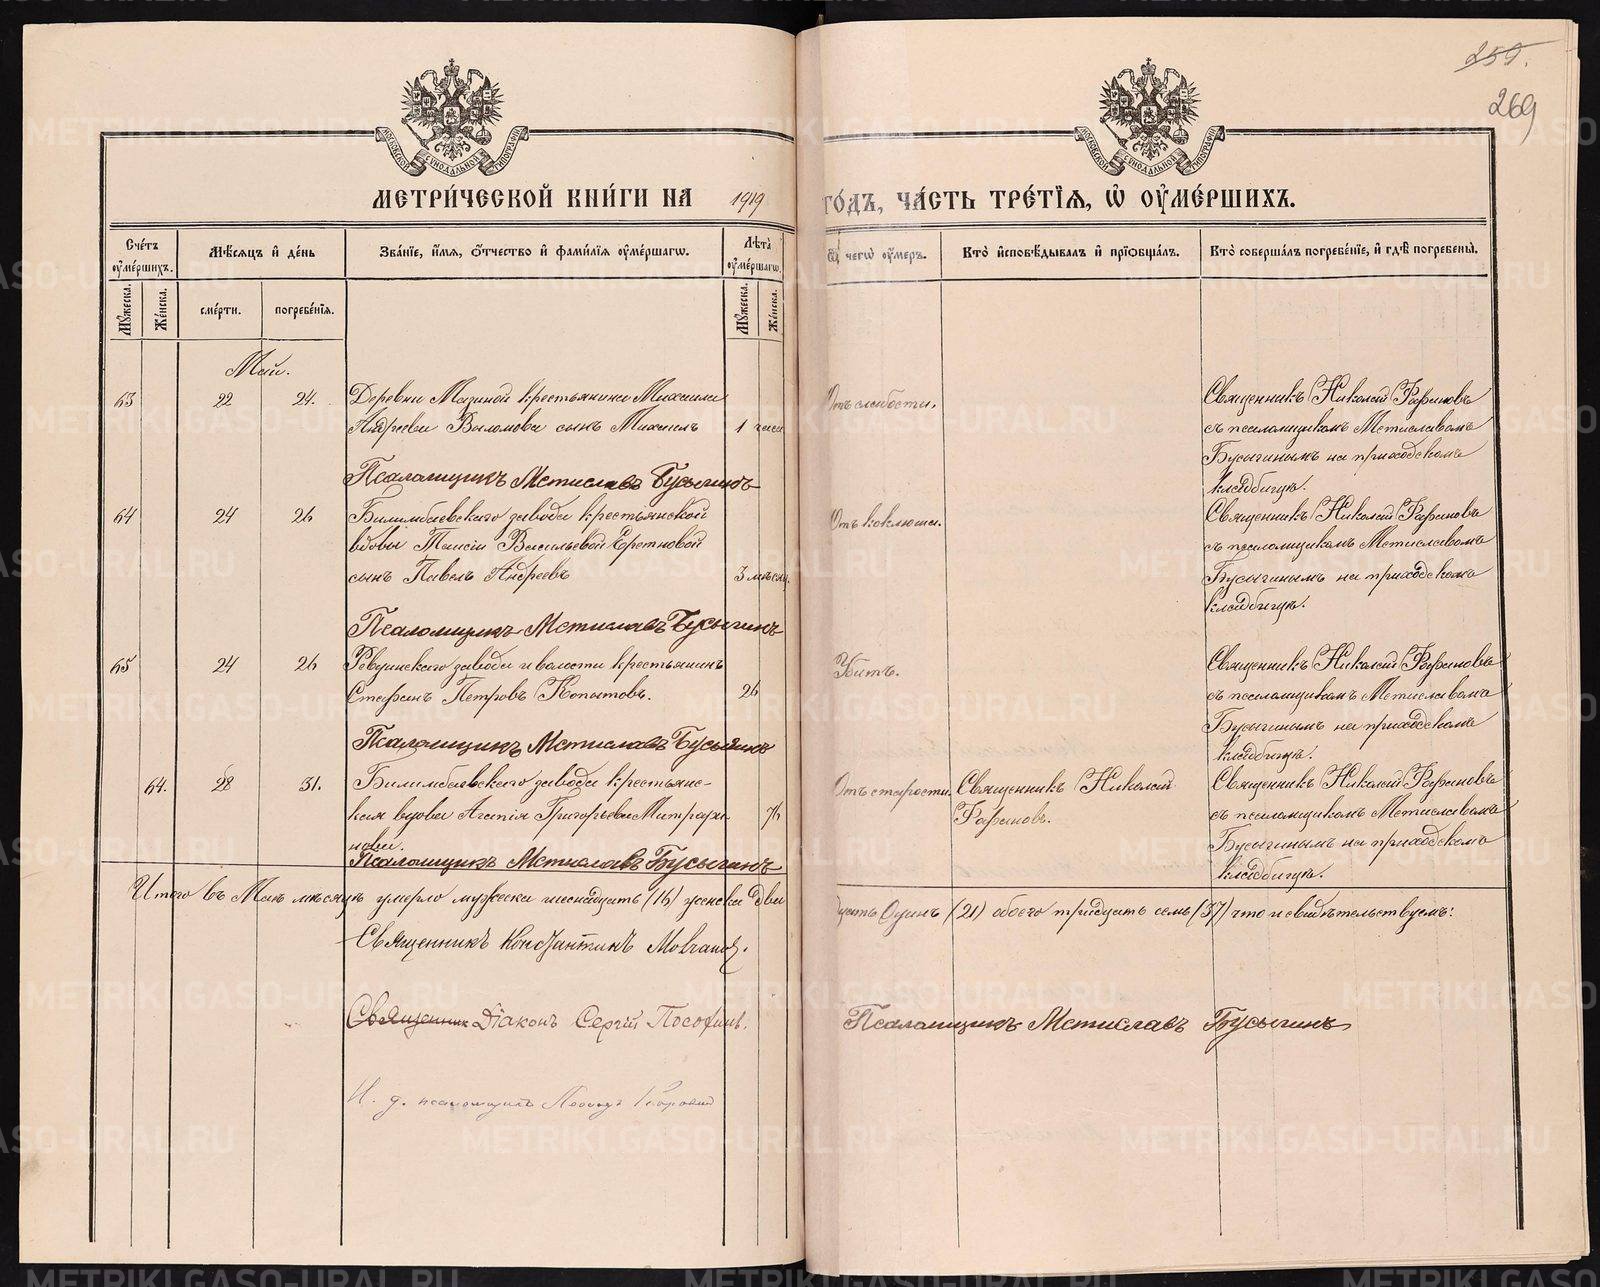 259.
269
МОСКОВСКОЙ СѴНОДАЛЬНОЙ ТИПОГРАФІИ
МОСКОВСКОЙ СѴНОДАЛЬНОЙ ТИПОГРАФІИ
МЕТРИ́ЧЕСКОЙ КНИ́ГИ НА 1919 ГО́ДЪ, ЧА́СТЬ ТРЕ́ТІЯ, Ѡ ОУМЕ́РШИХЪ.
Сче́тъ оуме́ршихъ.
Мѣ́сяцъ и де́нь
Зва́ніе, и́мя, о́тчество и фами́лія оуме́ршагѡ.
Лѣ́та оуме́ршагѡ.
Ѿ чегѡ̀ оу́меръ.
Кто̀ исповѣ́дывалъ и прїѡбща́лъ.
Кто̀ соверша́лъ погребе́ніе, и гдѣ̀ погребены̀.
Мꙋ́жеска.
Же́нска.
сме́рти.
погребе́нїя.
Мꙋ́жеска.
Же́нска.
Май.
63 22 24. Деревни Мазиной крестьянина Михаила
Андреева Выломова сынъ Михаилъ 1 часъ
Отъ слабости.
Священникъ Николай Фафановъ
съ псаломщикомъ Мстиславомъ
Бусыгинымъ на приходскомъ
кладбищѣ.
Псаломщикъ Мстиславъ Бусыгинъ
64 24 26 Билимбаевскаго завода крестьянской
вдовы Таисіи Васильевой
сынъ Павелъ Андреевъ 3 мѣсяц.
Отъ коклюша.
Священникъ Николай Фафановъ
съ псаломщикомъ Мстиславомъ
Бусыгинымъ на приходскомъ
кладбищѣ.
Псаломщикъ Мстиславъ Бусыгинъ
65 24 26 Ревдинскаго завода и волости крестьянинъ
Стефанъ Петровъ Копытовъ. 26
Убитъ.
Священникъ Николай Фафановъ
съ псаломщикомъ Мстиславомъ
Бусыгинымъ на приходскомъ
кладбищѣ.
Псаломщикъ Мстиславъ Бусыгинъ
64. 28 31. Билимбаевскаго завода крестьянс-
кая вдова Агапія Григорьева Митрофа-
нова. 76
Отъ старости.
Священникъ Николай
Фафановъ.
Священникъ Николай Фафановъ
съ псаломщикомъ Мстиславомъ
Бусыгинымъ на приходскомъ
кладбищѣ.
Псаломщикъ Мстиславъ Бусыгинъ
Итого въ Маѣ мѣсяцѣ умерло мужеска шеснадцать (16) женска двадцать Одинъ (21) обоего тридцать семь (37) что и свидѣтельствуемъ:
Священникъ Константинъ
Священникъ Діаконъ Сергій
Псаломщикъ Мстиславъ Бусыгинъ
И. д. псаломщика
METRIKI.GASO-URAL.RU